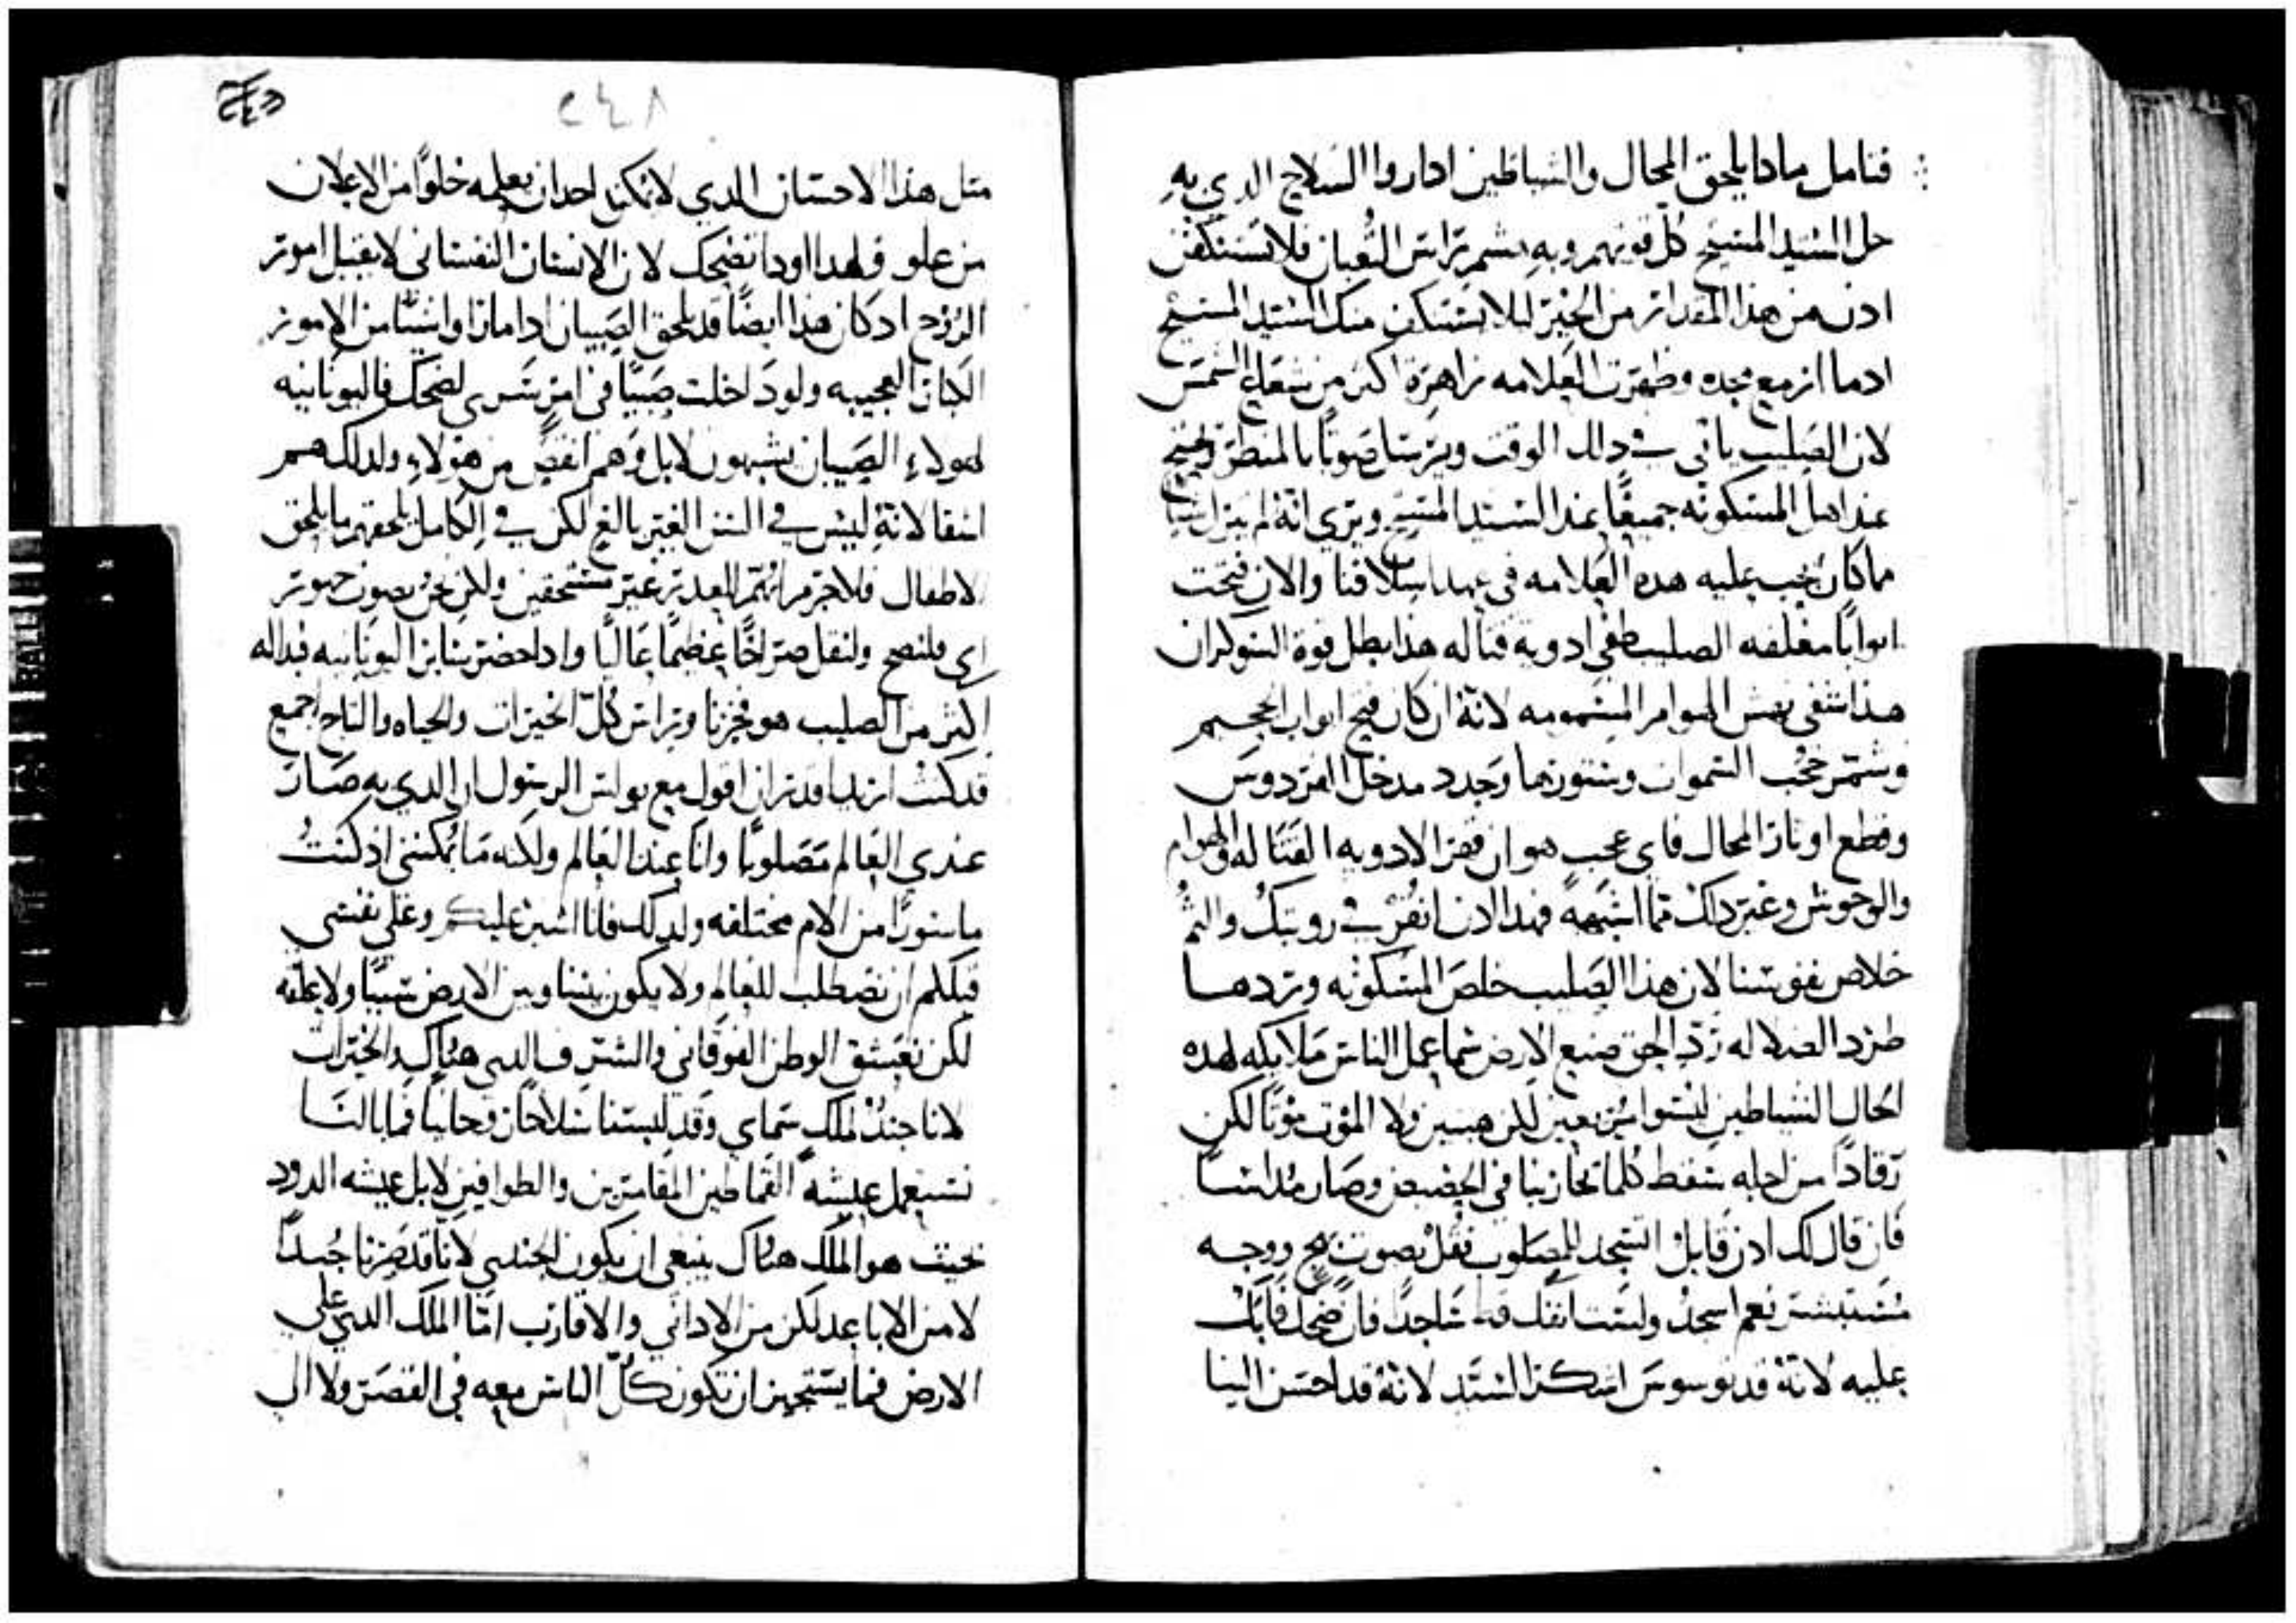 فتامل مادا يلحق المحال والشياطين ادا راوا السلاح الدي به
حل السيد المسيح كل قوتهم وبه هشم راس الثعبان فلا تستنكفن
ادن من هذا المقدار من الخير ليلا يستنكف منك السيد المسيح
ادما ازمع مجده وظهرت العلامه زاهرة اكثر من شعاع الشمس
لان الصليب ياتي في دالك الوقت ويرسل صوتا بالمنظر ويحتج
عند اهل المسكونه جميعا عند السيد المسيح ويري انه لم يترك شيا
ما كان يجب عليه هده العلامه في عهد اسلافنا والان فتحت
ابوابا مغلقه الصليب طفي ادوية قتاله هذا بطل قوة الشوكران
هدا شفي نهش الهوام المسمومه لانه ان كان فتح ابواب الجحيم
وشمر حجب السموات وستورها وجدد مدخل الفردوس
وقطع اوتار المحال فاي عجب هو ان قهر الادويه القتاله والهوام
والوحوش وغير دلك مما اشبهه فهدا الان انقش في رويتك والثم
خلاص نفوسنا لان هذا الصليب خلص المسكونه وردها
طرد الضلاله رد الحق صنع الارض سما عمل الناس ملايكه لهده
الحال الشياطين ليسوا مرعبين لكن هينين ولا الموت موتا لكن
رقادا من اجله سقط كلما يحاربنا في الحضيض وصار مداسا
فان قال لك ادن قايل اتسجد للمصلوب فقل بصوت بهج ووجه
مستبشر نعم اسجد ولست انفك قط ساجدا فان ضحك فابك
عليه لانه قد توسوس اشكر السيد لانه قد احسن الينا
٢٤٨
مثل هذا الاحسان الدي لا يمكن احد ان يعلمه خلوا من الاعلان
من علو ولهدا اودا تضحك لان الانسان النفساني لا يقبل امور
الروح اد كان هذا ايضا قد يلحق الصبيان ادا ما راوا شيا من الامور
الكبار العجيبه ولو داخلت صبيا في امر سري لضحك فاليونانيه
لهولاء الصبيان يشبهون لا بل وهم انقص من هؤلاء ولدلك هم
اشقا لانه ليس في السن الغير بالغ لكن في الكامل يلحقهم ما يلحق
الاطفال فلا جرم انهم للعدر غير مستحقين ولكن نحن بصوت جهور
اي فلنصح ولنقل صراخا عظيما عاليا وادا حضر بنا من اليونانيه فداله
اكثر من الصليب هو فخرنا وراس كل الخيرات والحياه والتاج اجمع
قد كنت اريد اقدر ان اقول مع بولس الرسول ان الدي به صار
عندي العالم مصلوبا وانا عند العالم ولكنه ما يمكنني اد كنت
ماسورا من الام مختلفه ولدلك فانا اشير عليكم وعلي نفسي
قبلكم ان نصطلب للعالم ولا يكون بيننا وبين الارض شيا ولا علقه
لكن نعشق الوطن الفوقاني والشرف الدي هناك والخيرات
لانا جند لملك سماي وقد لبسنا سلاحا روحانيا فما بالنا
نستعمل عيشه القماطين المقامرين والطوافين لا بل عيشه الدود
حيث هو الملك هناك ينبغي ان يكون الجندي لانا قد صرنا جندا
لا من الاباعد لكن من الاداني والاقارب اما الملك الدي علي
الارض فما يستجيز ان تكون كل الناس معه في القصر ولا الي